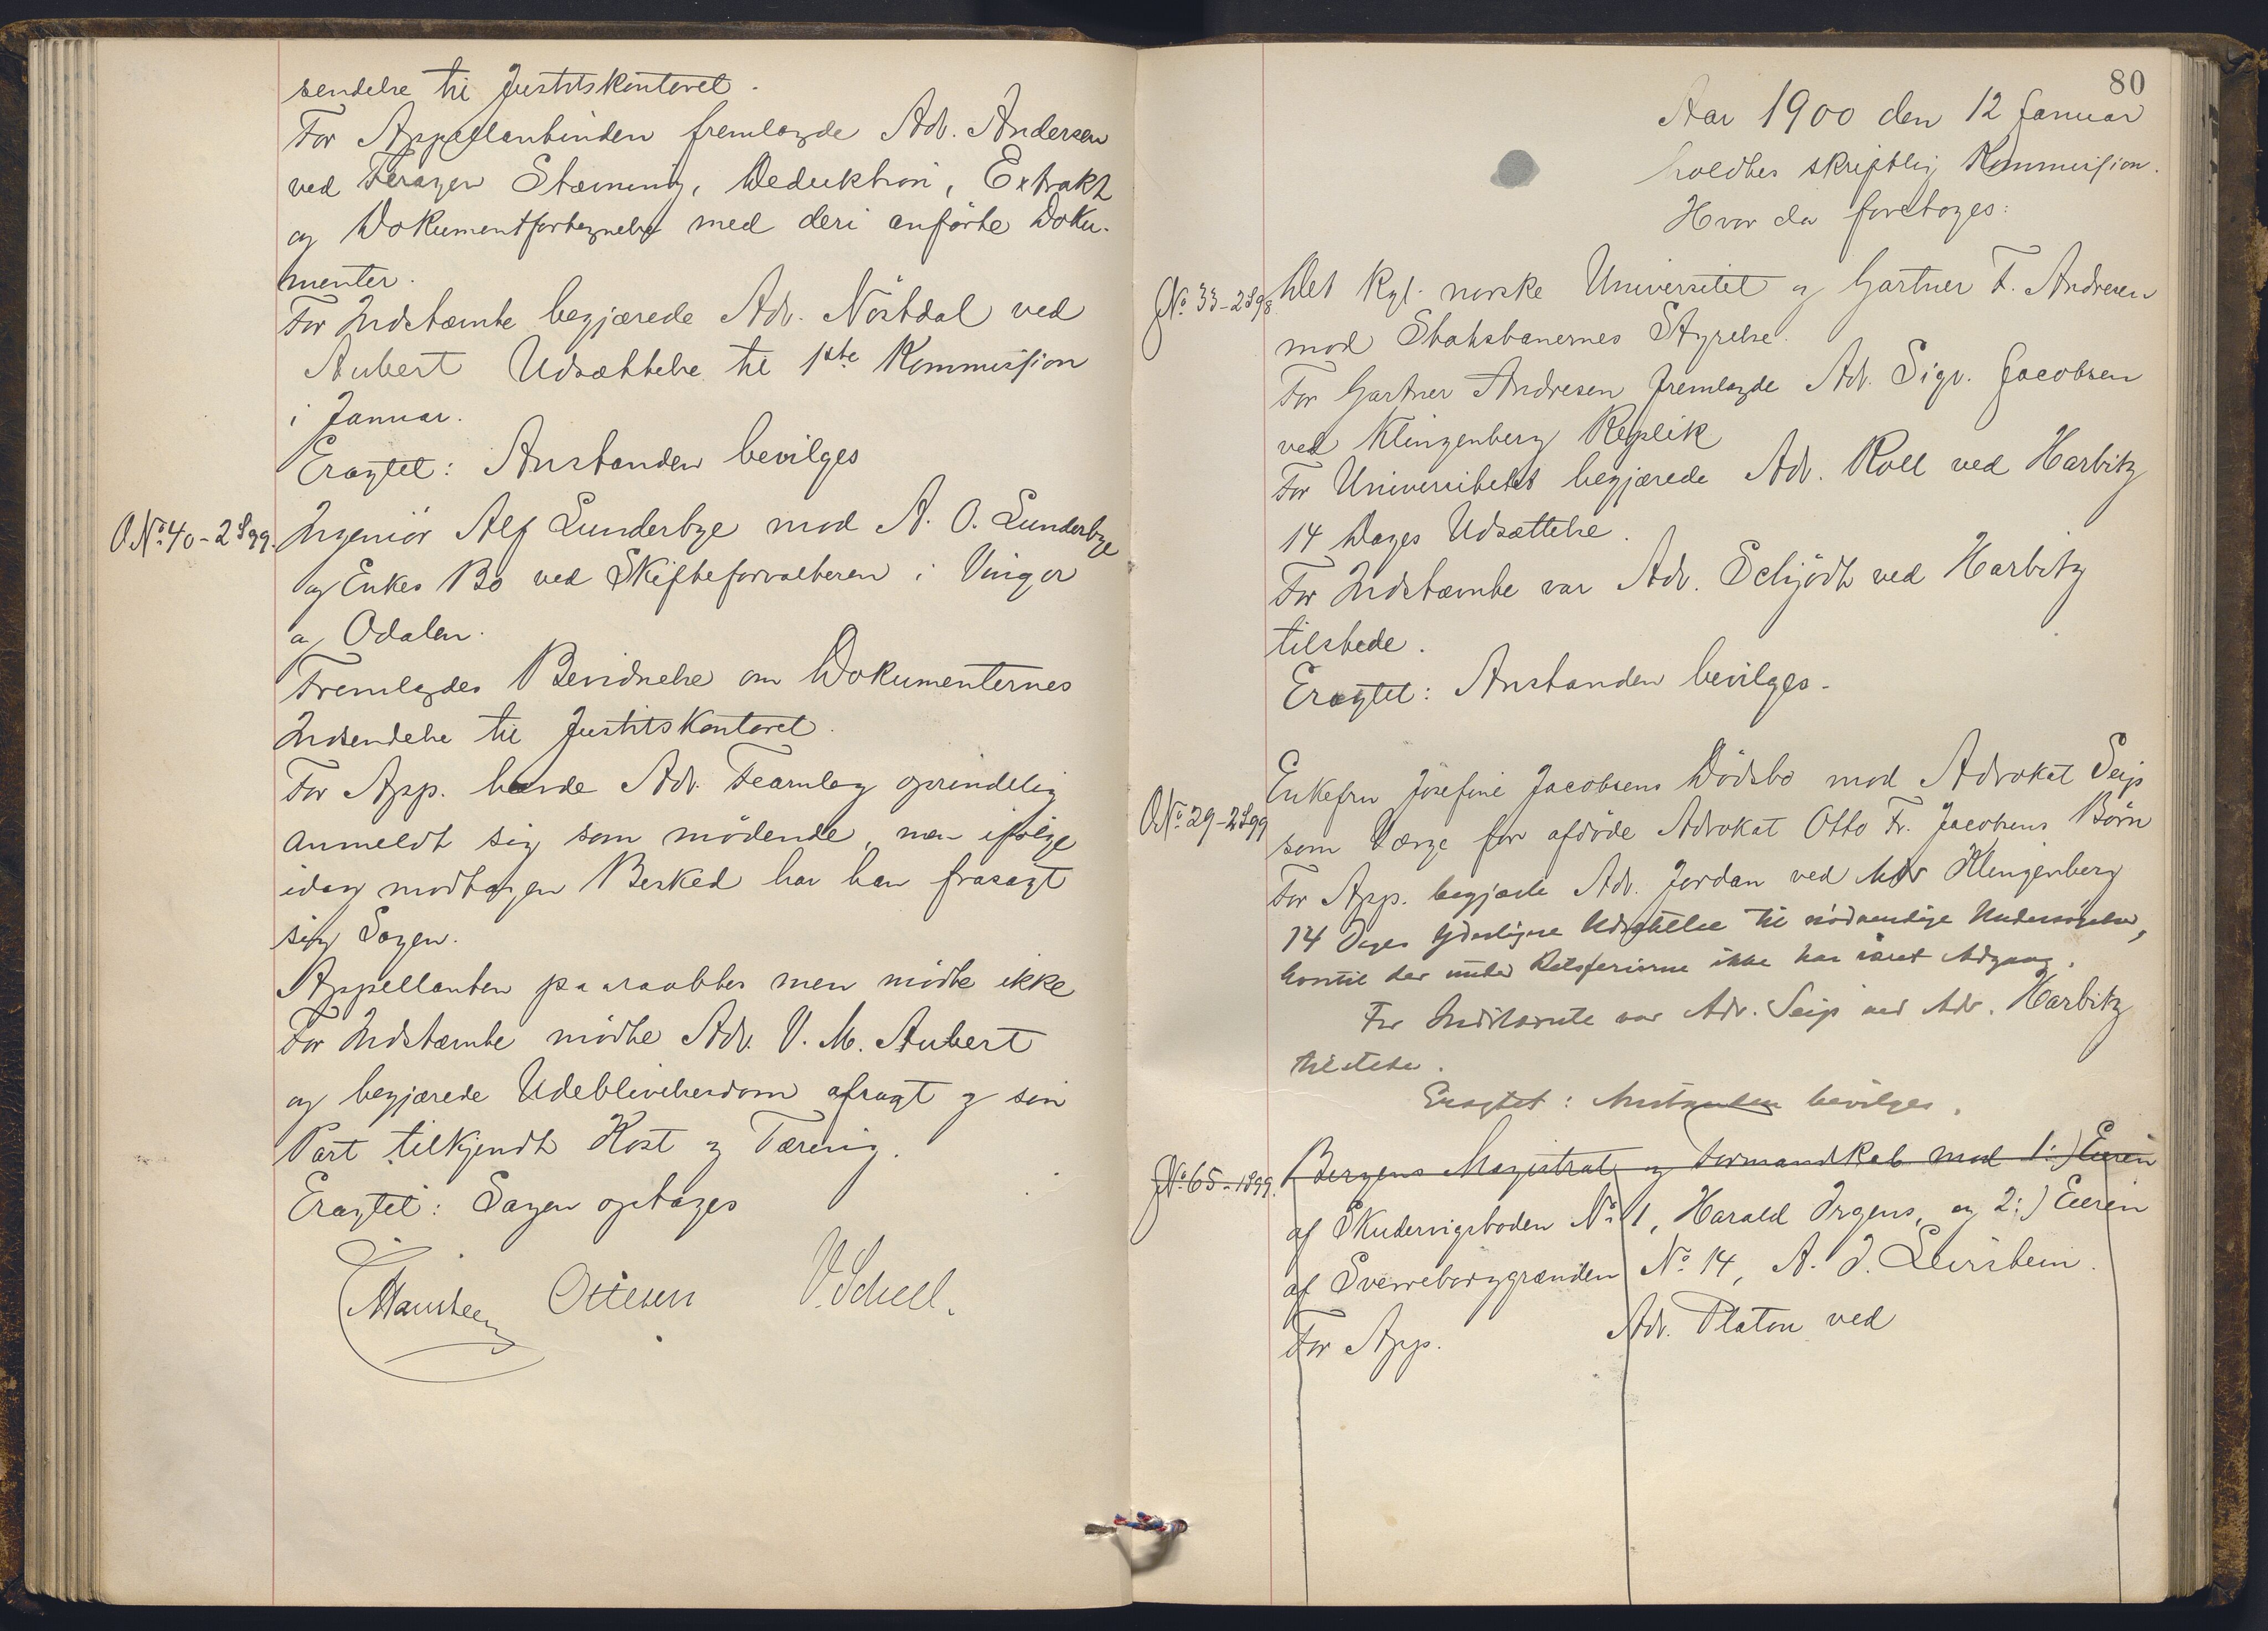 sendelse til Justitskontoret.
For Appellantinden fremlagde Adv. Andersen
ved Stævning, Deduktion, Extrakt
og Dokumentfortegnelse med deri anførte Doku-
menter.
For Indstævnte begjærede Adv. Nöstdal ved
Aubert Udsættelse til 1ste Kommission
i Januar.
Eragtet: Anstanden bevilges
O No. 40 - 2 S 99.
Ingeniör Alf Lunderbye mod A. O. Lunderbye
og Enkes Bo ved Skifteforvalteren i Vinger
og Odalen.
Fremlagdes Bevidnelse om Dokumenternes
Indsendelse til Justitskontoret.
For App. havde Adv. Fearnley oprindelig
anmeldt sig som mödende, men ifölge
idag modtagen Besked har han frasagt
sig Sagen.
Appellanten paaraabtes men mödte ikke
For Indstævnte mödte Adv. V. M. Aubert
og begjærede Udeblivelsesdom afsagt og sin
Part tilkjendt Kost og Tæring.
Eragtet: Sagen optages
Ottesen V. Schell.
80
Aar 1900 den 12 Januar
holdtes skriftlig Kommission.
Hvor da foretoges:
No. 33 - 2 S 98
Det Kgl. norske Universitet og Gartner F. Andresen
mod Statsbanernes Styrelse.
For Gartner Andresen fremlagde Adv. Sigv. Jacobsen
ved Klingenberg Replik
For Universitetet begjærede Adv. Roll ved Harbitz
14 Dages Udsættelse.
For Indstævnte var Adv. Schjödt ved Harbitz
tilstede.
Eragtet: Anstanden bevilges.
O No. 29 - 2 S 99
Enkefru Josefine Jacobsens Dödsbo mod Advokat Seip
som Værge for afdöde Advokat Otto Fr. Jacobsens Börn
For App. begjærte Adv. Jordan ved Adv Klingenberg
14 Dages yderligere Udsættelse til nödvendige Undersögelser,
hvortil der under Retsferierne ikke har været Adgang.
For Indstævnte var Adv. Seip ved Adv. Harbitz
tilstede.
Eragtet: Anstanden bevilges.
No. 65 - 1899.
Bergens Magistrat og Formandskab mod 1:) Eieren
af Skudervigsboden No. 1, Harald Irgens, og 2:) Eieren
af Sverreborggrænden No. 14, A. J. Levirstein.
For App. Adv. Platou ved